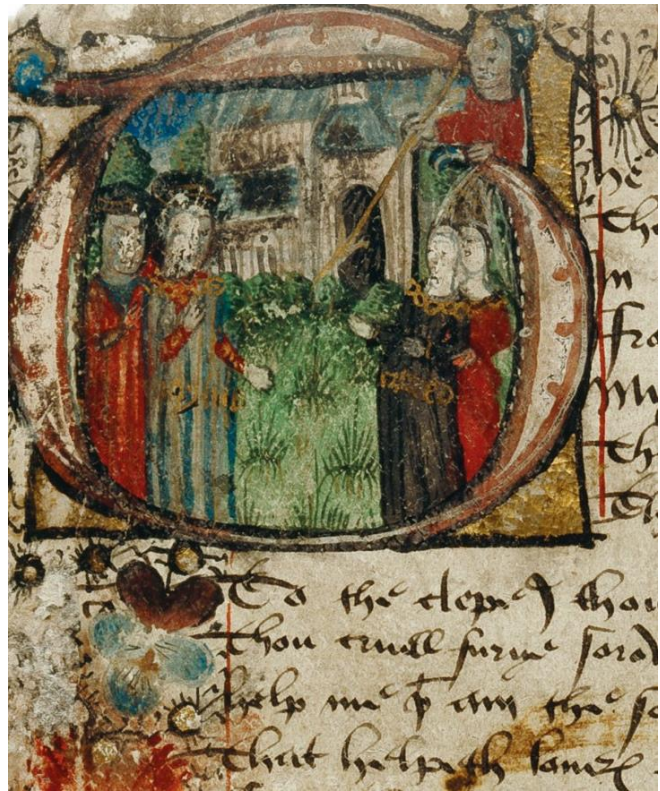 he
Th
In
Fro
My
Th
Th
To the clepe I thou
Thou cruell furye soro
help me þt am the so
That helpeth louerz